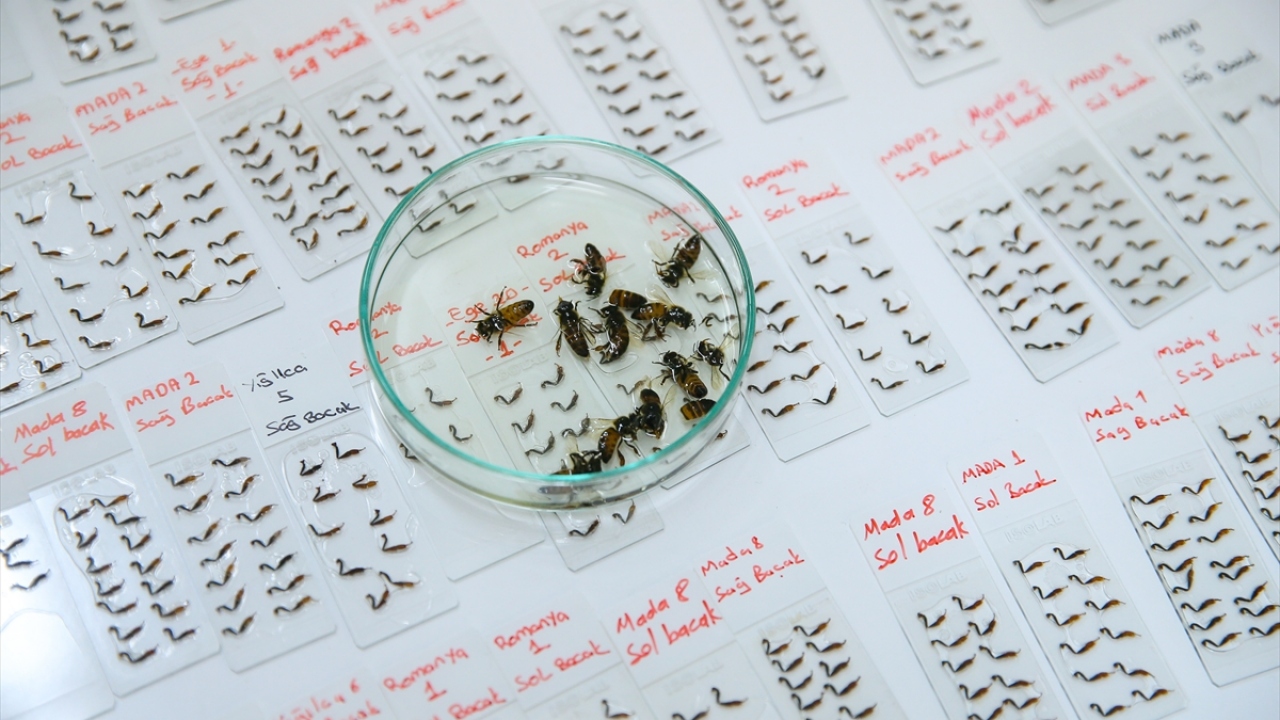 Sağ bacak
MADA 2
Sağ Bacak
-Ege 1
Sağ Bacak
-1-
Romanya 2
Sağ bacak
2
Sol Bacak
MADA
5
Sağ Bacak
MADA 5
Sol Bacak
Mada 2
Sol bacak
MADA 2
Sağ Bacak
Romanya
2
SOL Bacak
Romanya
2
-Ege 20-
-1-
2
Bacak
Mada 8
1 Sol bacak
MADA 2
Sağ Bacak
Yığılca
5
Sağ Bacak
Mada 8
Sağ Bacak
Mada 1
Sag Bacak
MADA 1
Sol Bacak
Mada 8
Sol bacak
Mada 8
Sağ Bacak
Mada 8
Sol bacak
Romanya
1
Sol Bacak
Romanya
1
Sol Bacak